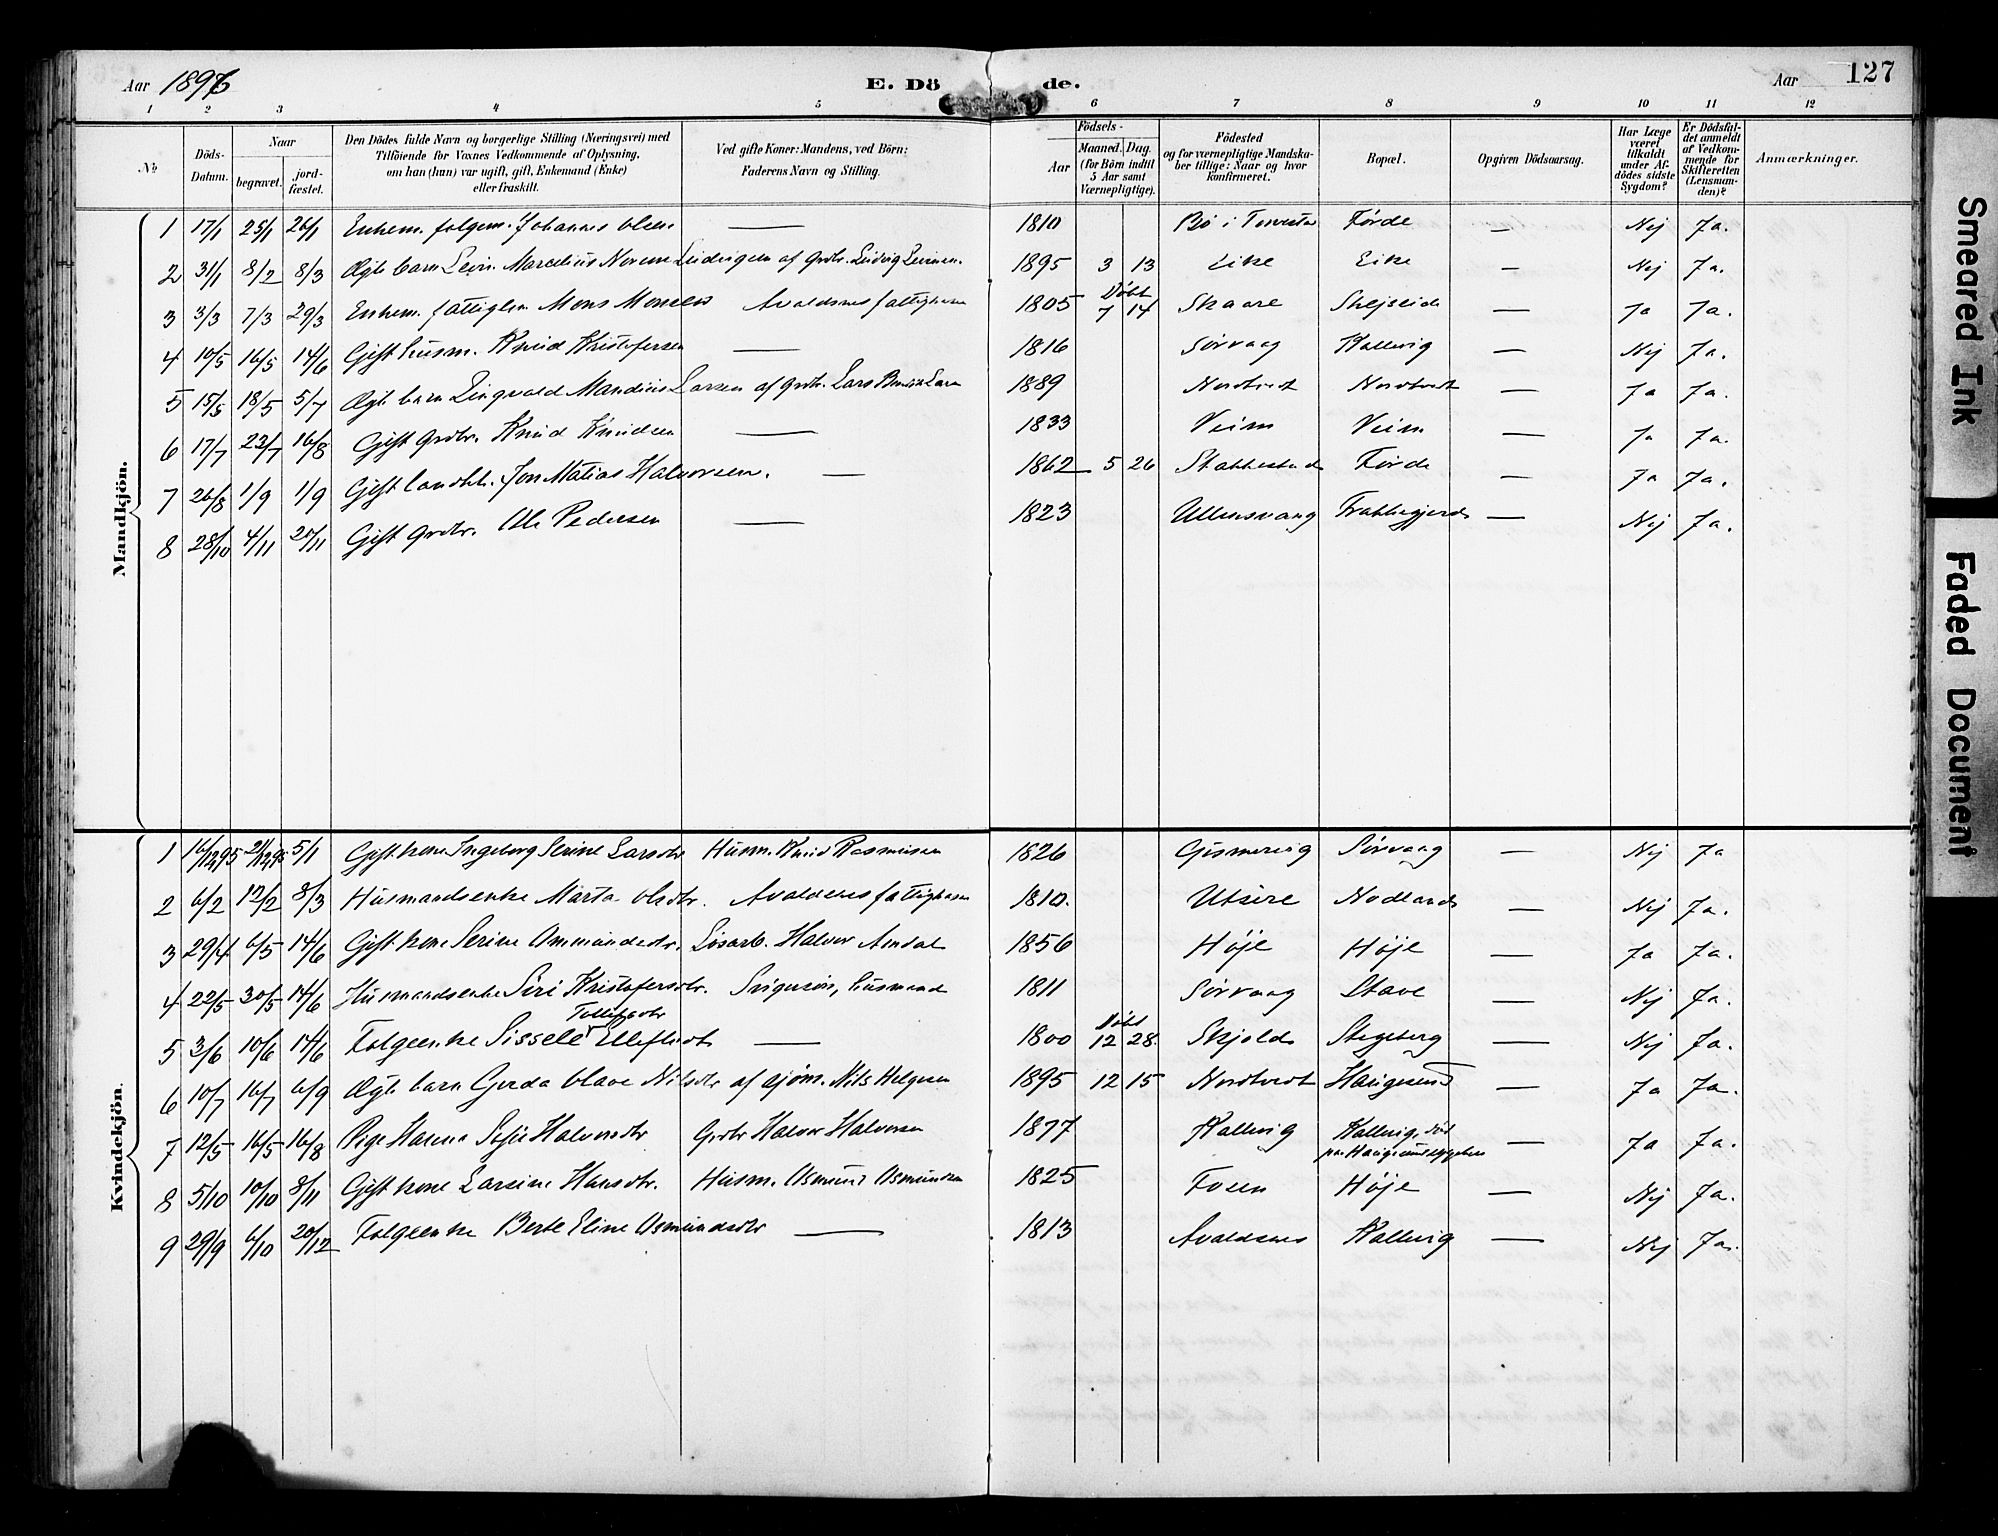 Aar 1896 E. Dö de. Aar 127
1 2 3 4 5 6 7 8 9 10 11 12
No Döds-Datum. Naar begravet. jordfæstet. Den Dödes fulde Navn og borgerlige Stilling (Næringsvei) med Tilföiende for Voxnes Vedkommende af Oplysning, om han (hun) var ugift, gift, Enkemand (Enke) eller fraskilt. Ved gifte Koner: Mandens, ved Börn: Faderens Navn og Stilling. Födsels- Aar Maaned. Dag. (for Börn indtil 5 Aar samt Værnepligtige). Födested og for værnepligtige Mandskaber tillige: Naar og hvor konfirmeret. Bopæl. Opgiven Dödsaarsag. Har Læge været tilkaldt under Afdödes sidste Sygdom? Er Dödsfaldet anmeldt af Vedkommende for Skifteretten (Lensmanden)? Anmærkninger.
Mandkjön.
1 17/1 25/1 26/1 Enkem. folgem. Johannes Olsen — 1810 Bö i Førde — Nej Ja.
2 31/1 8/2 8/3 Ægte barn Levin Marcelius Ludvigsen af grdbr. Ludvig 1895 3 13 Eike Eike — Nej Ja.
3 3/3 7/3 29/3 Enkem. fattiglem Mons Monsen Avaldsnes fattigkasse 1805 Døbt 7 14 Skaare Skejseid — Ja Ja.
4 10/5 16/5 14/6 Gift husm. Knud Kristofersen — 1816 Sørvaag Kallevig — Nej Ja.
5 15/5 18/5 5/7 Ægte barn Ringvald Mandius Larsen af grdbr. Lars 1889 Nordtvedt Nordtvedt — Ja Ja.
6 17/7 23/7 16/8 Gift grdbr. Knud Knudsen — 1833 Veim Veim — Ja Ja.
7 26/8 1/9 1/9 Gift landhl. Jon Matias Halvorsen. — 1862 5 26 Stakkestad Førde — Ja Ja.
8 28/10 4/11 20/11 Gift grdbr. Ole Pedersen — 1823 Ullensvang — Nej Ja.
Kvindekjön.
1 16/12 95 21/12 95 5/1 Gift kone Ingeborg Serine Larsdtr Husm. Knud Rasmussen 1826 Gismervig Sørvaag — Nej Ja
2 6/2 12/2 8/3 Husmandsenke Marta Olsdtr. Avaldsnes fattigkasse 1810. Utsire Nodland — Nej Ja.
3 29/4 6/5 14/6 Gift kone Serine Ommundsdtr. Løsarb. Halvor Amdal 1856 Høje Høje — Ja Ja.
4 22/5 30/5 14/6 Husmandsenke Siri Kristofersdtr. husmand 1811 Sørvaag Stave — Nej Ja.
5 3/6 10/6 14/6 Folgeenke Sissele Tollefsdtr Ellefsdtr — 1800 Døbt 12 28. Skjold Stegeberg — Nej Ja.
6 10/7 16/7 6/9 Ægte barn Gerda Olave Nilsdtr af sjøm. Nils Helgesen 1895 12 15 Nordtvedt Haugesund — Ja Ja.
7 12/5 16/5 16/8 Pige Hanna Sofie Halvorsdtr Grdbr Halvor Halvorsen 1877 Kallevig Kallevig, død paa Haugesunds sygehus — Ja Ja.
8 5/10 10/10 8/11 Gift kone Larsine Hansdtr. Husm. Osmund Osmundsen 1825 Fosen Høje — Nej Ja.
9 29/9 6/10 20/12 Folgeenke Berte Eline Osmundsdtr — 1813 Avaldsnes Kallevig — Nej Ja.
Smeared Ink
Faded Document